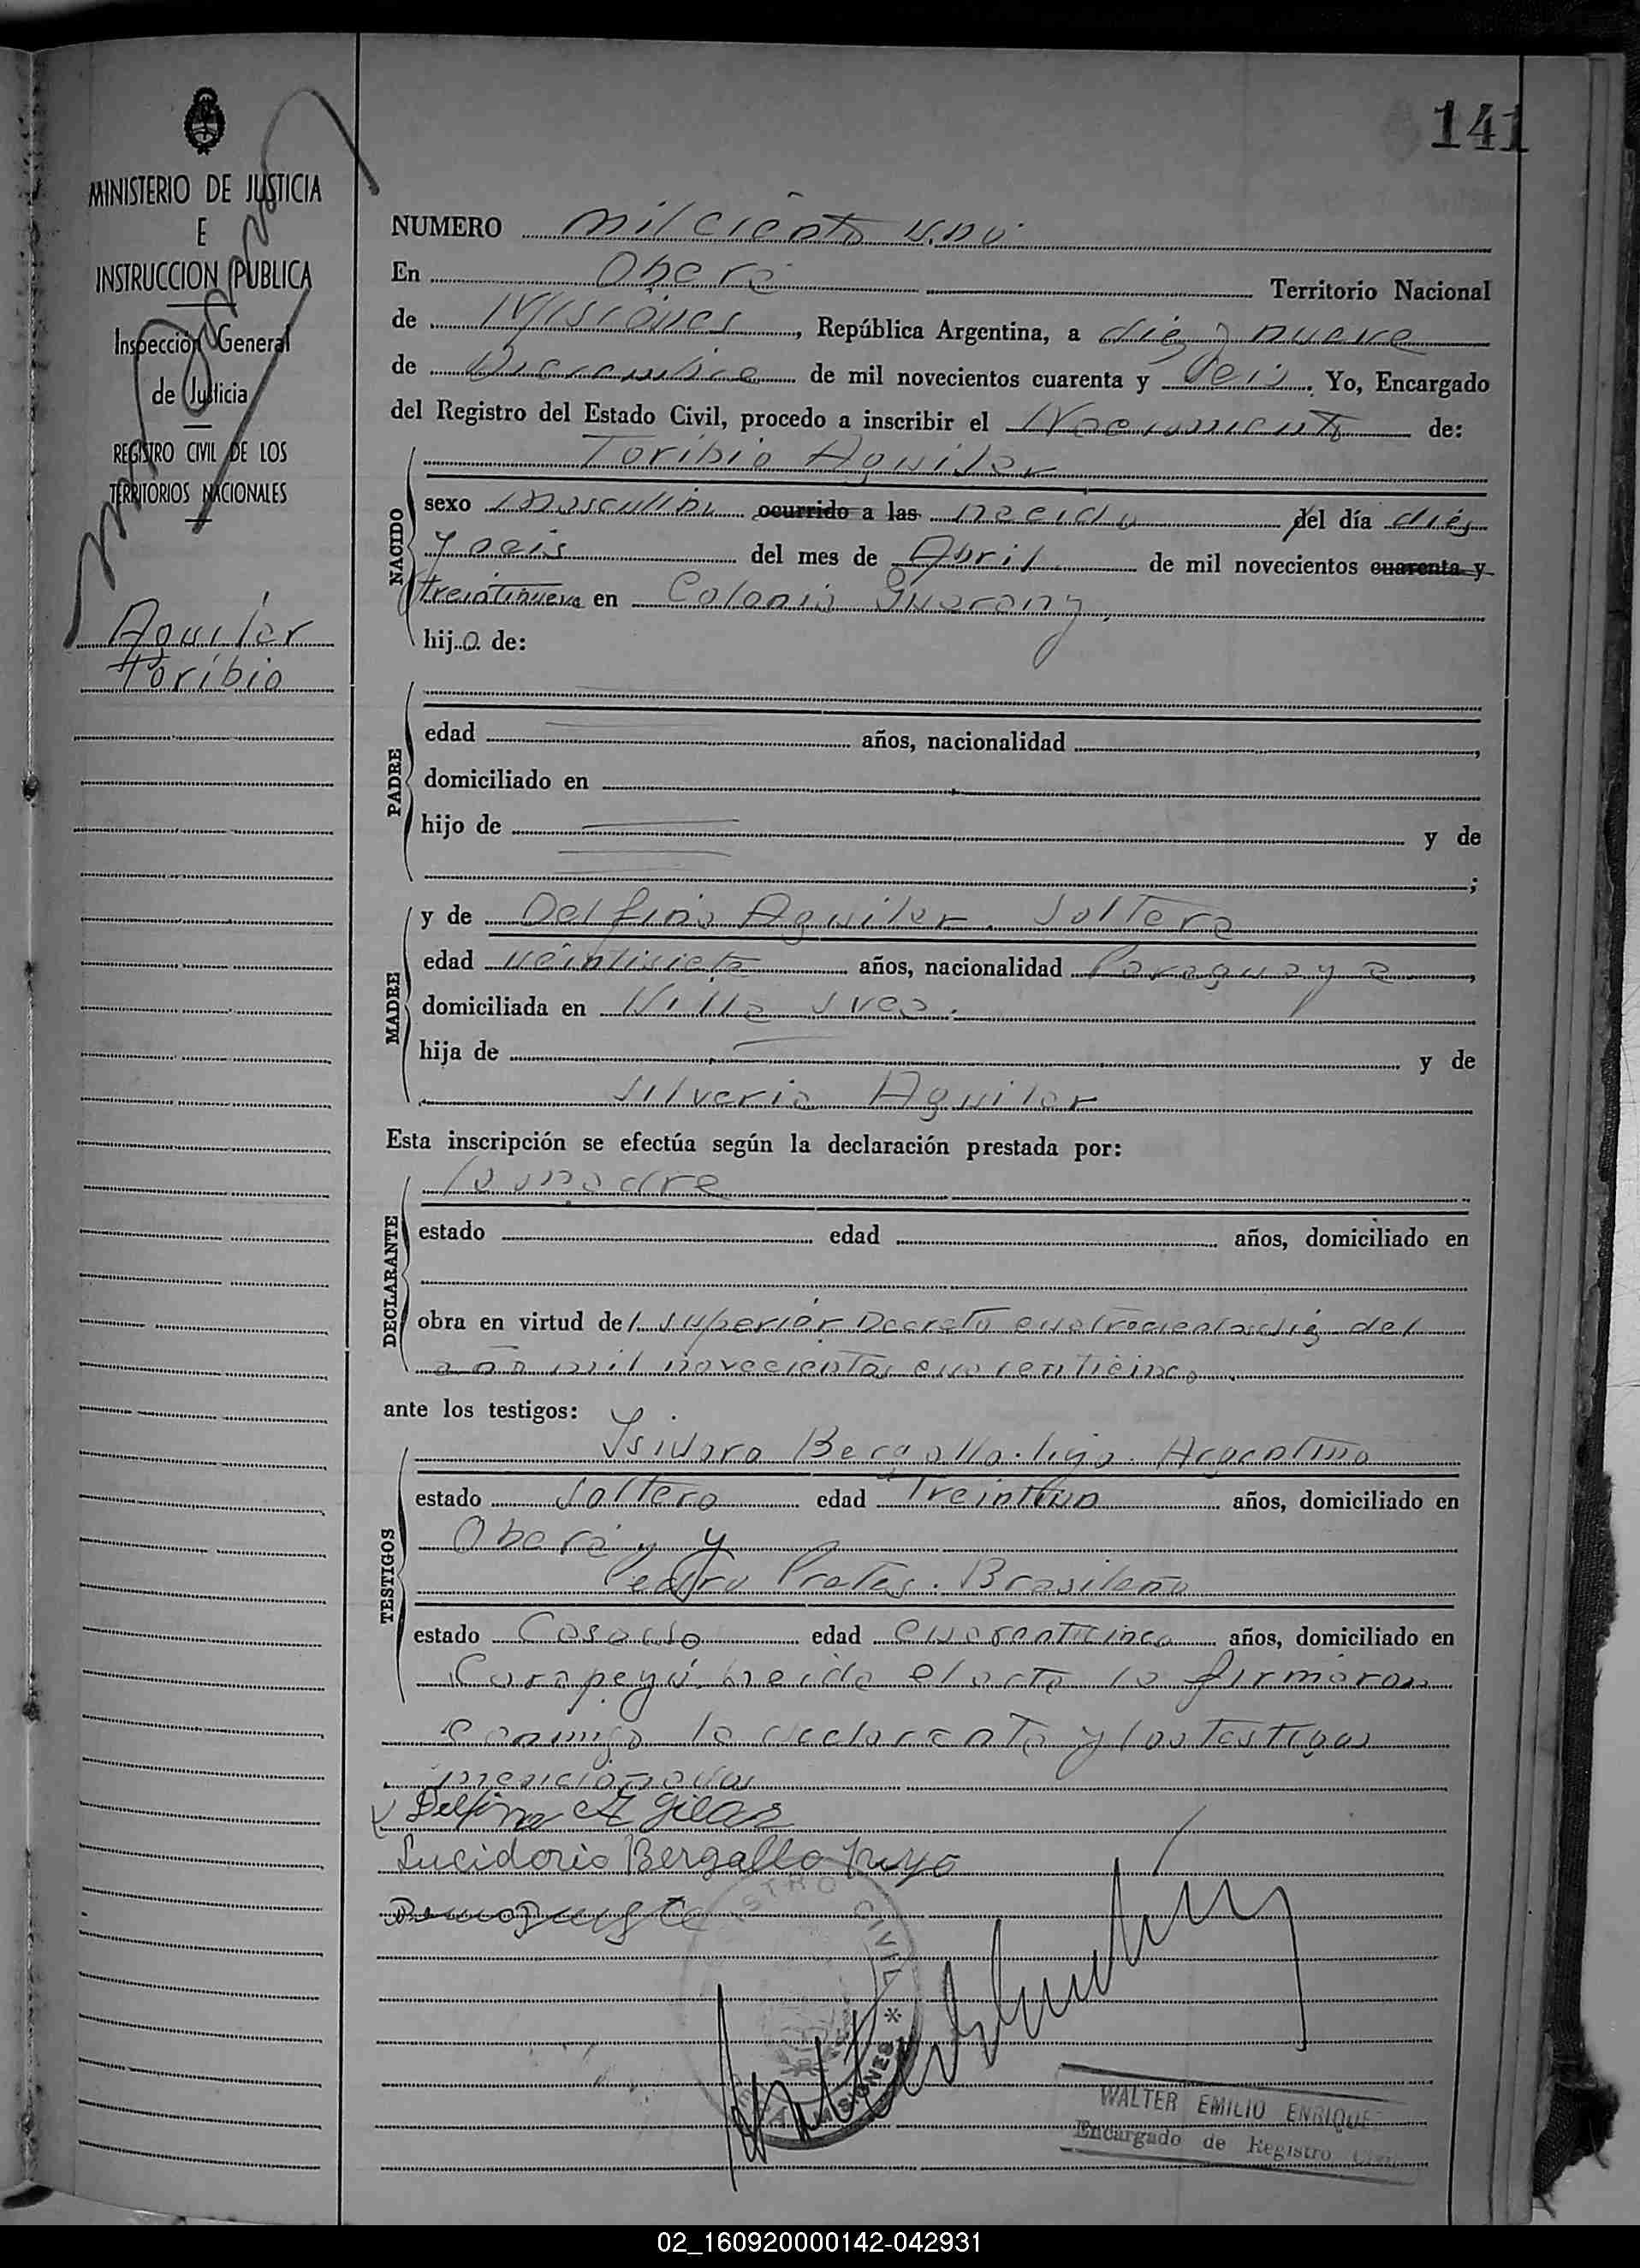 141
MINISTERIO DE JUSTICIA
E
INSTRUCCION PUBLICA
Inspección General
de Justicia
REGISTRO CIVIL DE LOS
TERRITORIOS NACIONALES
Aguilar
Toribio
NUMERO mil ciento uno
En Oberá Territorio Nacional
de Misiones, República Argentina, a diez y nueve
de Diciembre de mil novecientos cuarenta y seis. Yo, Encargado
del Registro del Estado Civil, procedo a inscribir el Nacimiento de:
Toribio Aguilar
NACIDO
sexo Masculino ocurrido a las nacido del día diés
y seis del mes de Abril de mil novecientos cuarenta y
treintinueve en Colonia Guarany,
hijo de:
PADRE
edad años, nacionalidad ,
domiciliado en
hijo de y de
;
MADRE
y de Delfina Aguilar. Soltera
edad veintisiete años, nacionalidad Paraguaya,
domiciliada en Villa Svea.
hija de y de
Silveria Aguilar
Esta inscripción se efectúa según la declaración prestada por:
DECLARANTE
la madre
estado edad años, domiciliado en
obra en virtud del superior Decreto cuatrocientosdiéz del
año mil novecientos cuarenticinco
ante los testigos:
TESTIGOS
Bergallo. hijo. Argentino
estado Soltero edad Treintiun años, domiciliado en
Oberá y
Pedro Prates. Brasileño
estado Casado edad cuarenticinco años, domiciliado en
Carapeyú. Leida el acta la firmaron
conmigo la declarante y los testigos
mencionados
Delfina Agilar
Lucidorio Bergallo hijo
REGISTRO CIVIL
MISIONES
WALTER EMILIO ENRIQUE
Encargado de Registro Civil
02_160920000142-042931